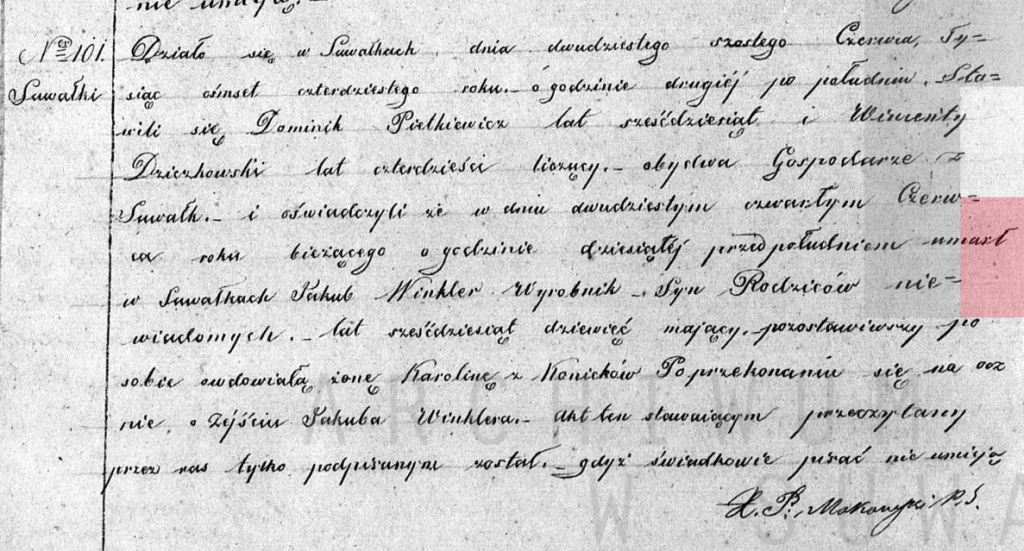 nie umieją. –
No 101. Działo się w Suwałkach dnia dwudziestego szostego Czerwca, Ty=
Suwałki siąc ośmset czterdziestego roku. – o godzinie drugiéj po południu. Sta=
wili się Dominik Pietkiewicz lat sześćdziesiąt i Wincenty
Dzieżkowski lat czterdzieści liczący. – obydwa Gospodarze z
Suwałk. – i oświadczyli że w dniu dwudziestym czwartym Czerw=
ca roku bieżącego o godzinie dziesiątéj przed południem umarł
w Suwałkach Jakub Winkler Wyrobnik – Syn Rodziców nie=
wiadomych. – lat sześćdziesiąt dziewięć mający. – pozostawiwszy po
sobie owdowiałą żonę Karolinę z Konicków Po przekonaniu się na ocz
nie o Zéjściu Jakuba Winklera. – Akt ten stawaiącym przeczytany
przez nas tylko podpisanym został. – gdyż świadkowie pisać nie umieją
X. P.
ARCHIWUM
W SUWA